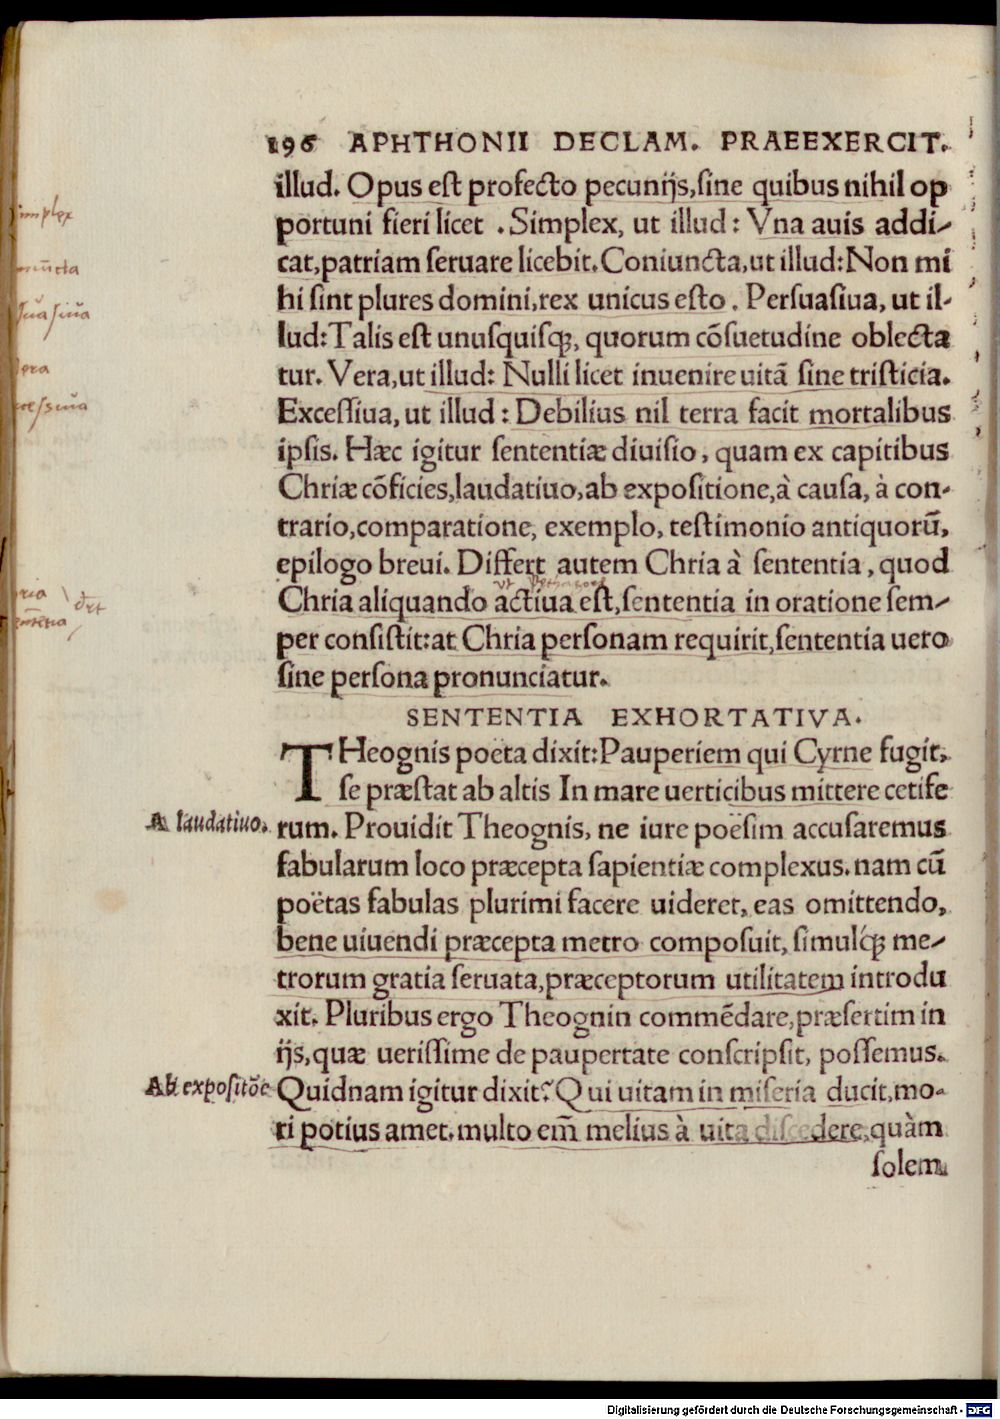 196 APHTHONII DECLAM. PRAEEXERCIT.
illud. Opus est profecto pecunijs, sine quibus nihil op
portuni fieri licet . Simplex, ut illud : Vna auis addi-
cat, patriam seruare licebit. Coniuncta, ut illud: Non mi
hi sint plures domini, rex unicus esto . Persuasiua, ut il-
lud: Talis est unusquisq;, quorum cõsuetudine oblecta
tur. Vera, ut illud: Nulli licet inuenire uitã sine tristicia.
Excessiua, ut illud : Debilius nil terra facit mortalibus
ipsis. Hæc igitur sententiæ diuisio, quam ex capitibus
Chriæ cõficies, laudatiuo, ab expositione, à causa, à con-
trario, comparatione, exemplo, testimonio antiquorũ,
epilogo breui. Differt autem Chria à sententia, quod
Chria aliquando actiua est, sententia in oratione sem-
per consistit: at Chria personam requirit, sententia uero
sine persona pronunciatur.
SENTENTIA EXHORTATIVA.
THeognis poëta dixit: Pauperiem qui Cyrne fugit,
se præstat ab altis In mare uerticibus mittere cetife
A laudatiuo. rum. Prouidit Theognis, ne iure poësim accusaremus
fabularum loco præcepta sapientiæ complexus. nam cũ
poëtas fabulas plurimi facere uideret, eas omittendo,
bene uiuendi præcepta metro composuit, simulq́; me-
trorum gratia seruata, præceptorum utilitatem introdu
xit. Pluribus ergo Theognin commẽdare, præsertim in
ijs, quæ uerissime de paupertate conscripsit, possemus.
Ab expositõe Quidnam igitur dixit? Qui uitam in miseria ducit, mo-
ri potius amet. multo em̃ melius à uita discedere, quàm
solem